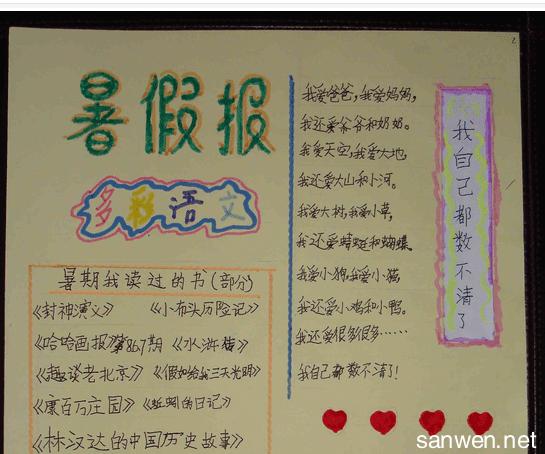 暑假报
多彩语文
暑期我读过的书(部分)
《封神演义》 《小布头历险记》
《哈哈画报》第867期 《水浒传》
《趣谈老北京》 《假如给我三天光明》
《康百万庄园》 《蚯蚓的日记》
《林汉达的中国历史故事》
我爱爸爸,我爱妈妈,
我还爱爷爷和奶奶。
我爱天空,我爱大地,
我还爱大山和小河。
我爱大树,我爱小草,
我还爱蜻蜓和蝴蝶。
我爱小狗,我爱小猫,
我还爱小鸡和小鸭。
我还爱很多很多……
我自己都数不清了!
我自己都数不清了
2
sanwen.net